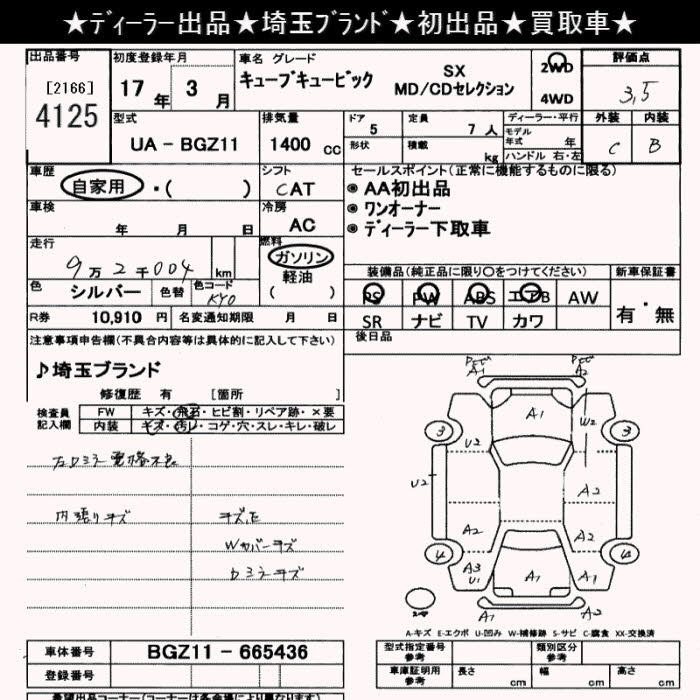 ★ディーラー出品★埼玉ブランド★初出品★買取車★
出品番号
[2166]
4125
初度登録年月
17年 3月
車名 グレード
キューブキュービック
SX
MD/CDセレクション
2WD
4WD
評価点
3,5
外装 内装
C B
型式
UA - BGZ11
排気量
1400 cc
ドア
5
形状
定員
7 人
積載
kg
ディーラー・平行
モデル
年式 年
ハンドル 右・左
車歴
自家用 ・( )
シフト
CAT
セールスポイント(正常に機能するものに限る)
◉ AA初出品
◉ ワンオーナー
◉ ディーラー下取車
車検
年 月 日
冷房
AC
走行
9万2千004 km
燃料
ガソリン
軽油
( )
色 シルバー
色替
色コード
KY0
装備品(純正品に限り○をつけてください)
PS PW ABS エアB AW
SR ナビ TV カワ
新車保証書
有・無
R券 10,910 円
名変通知期限 月 日
後日品
注意事項申告欄(不具合内容等は具体的に記入して下さい)
♪埼玉ブランド
修復歴 有 [箇所
検査員
記入欄
FW キズ・飛石・ヒビ割・リペア跡・×要
内装 キズ・汚レ・コゲ・穴・スレ・キレ・破レ
左Dミラー電格不良
内張りキズ
キズ,E
Wカバーキズ
Dミラーキズ
A1 A2
A1
W2
3 3
U2
U2
A2
A2 A2
4 4
A3
U1
A1
A1
A1 A2
A-キズ E-エクボ U-凹み W-補修跡 S-サビ C-腐食 XX-交換済
車体番号
BGZ11 - 665436
登録番号
型式指定番号
参考
類別区分
参考
車庫証明用
参考
長さ cm
幅 cm
高さ cm
希望出品コーナー(コーナーは各会場により異なります)